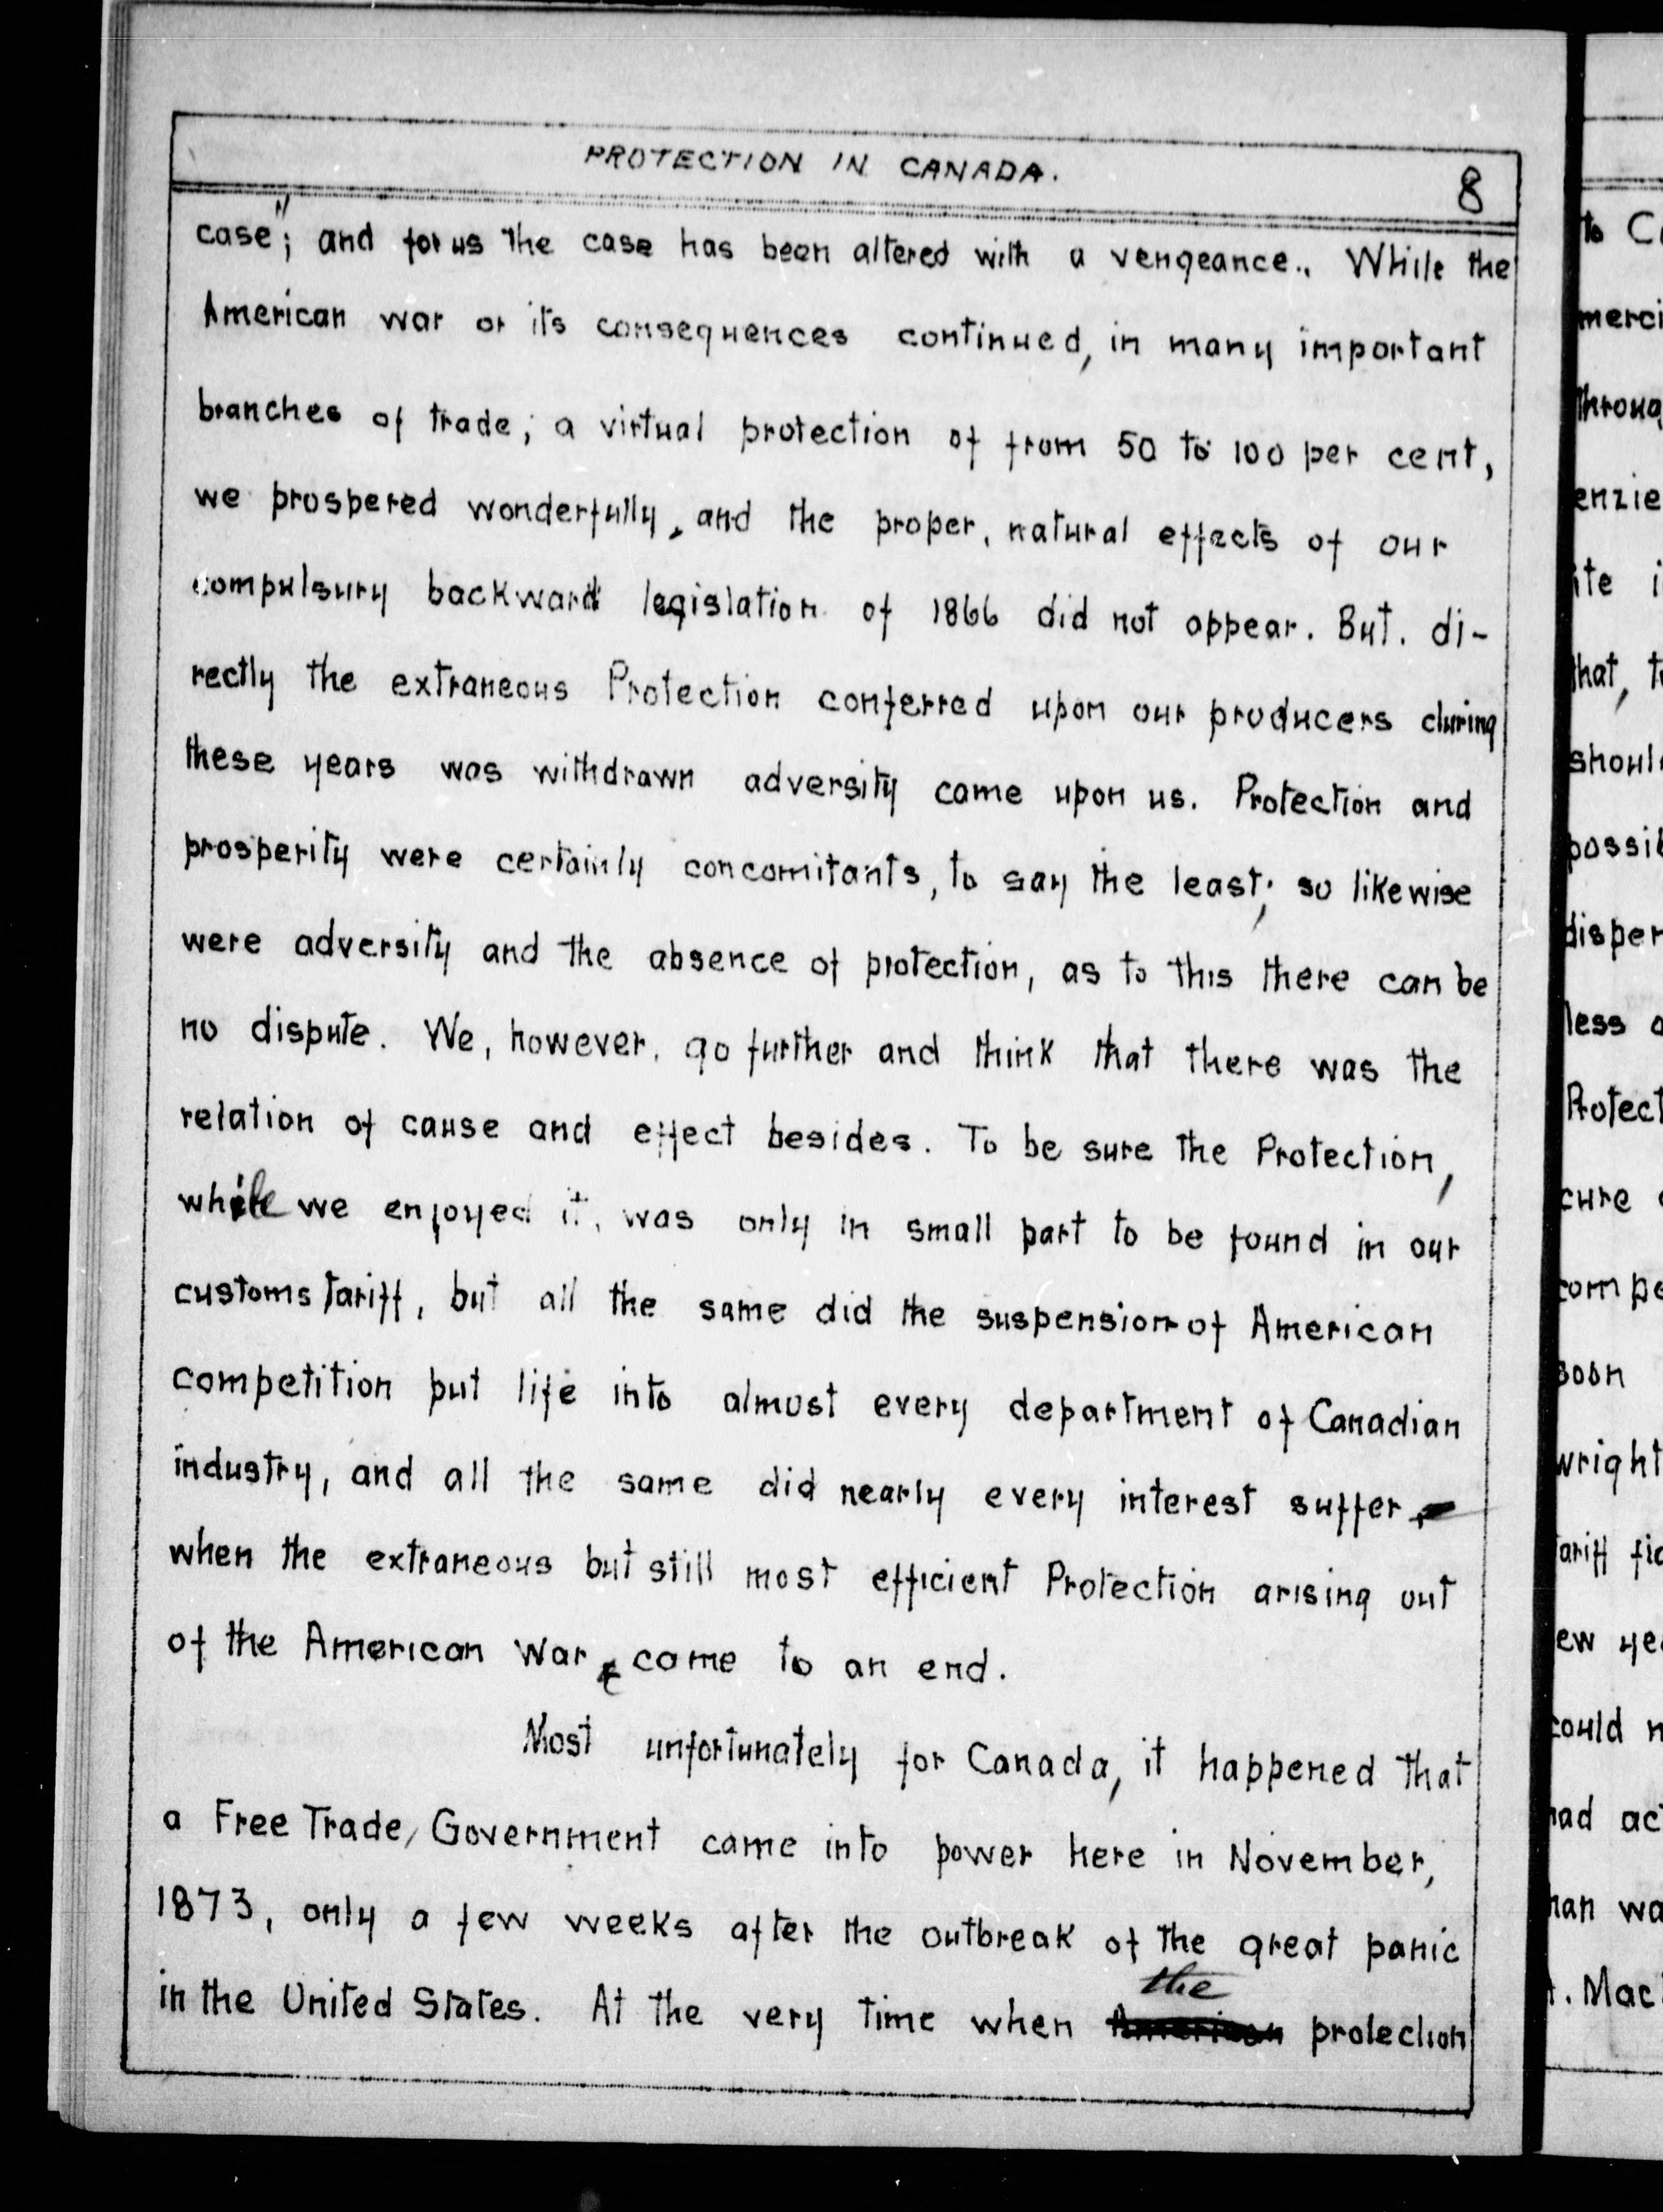 PROTECTION IN CANADA.
8
case"; and for us the case has been altered with a vengeance.. While the
American war or its consequences continued, in many important
branches of trade; a virtual protection of from 50 to 100 per cent,
we prospered wonderfully, and the proper, natural effects of our
compulsury backward legislation of 1866 did not appear. But. di-
rectly the extraneous Protection conferred upon our producers during
these years was withdrawn adversity came upon us. Protection and
prosperity were certainly concomitants, to say the least; so likewise
were adversity and the absence of protection, as to this there can be
no dispute. We, however, go further and think that there was the
relation of cause and effect besides. To be sure the Protection,
while we enjoyed it, was only in small part to be found in our
customs tariff, but all the same did the suspension of American
competition put life into almost every department of Canadian
industry, and all the same did nearly every interest suffer
when the extraneous but still most efficient Protection arising out
of the American War came to an end.
Most unfortunately for Canada, it happened that
a Free Trade, Government came into power here in November,
1873, only a few weeks after the outbreak of the great panic
the
in the United States. At the very time when American protection
to
merci
throug
enzie
ite i
that, t
shoul
possib
disper
less
Protect
cure
compe
soon
wright
tariff
ew ye
could n
had ac
han wa
. Mac